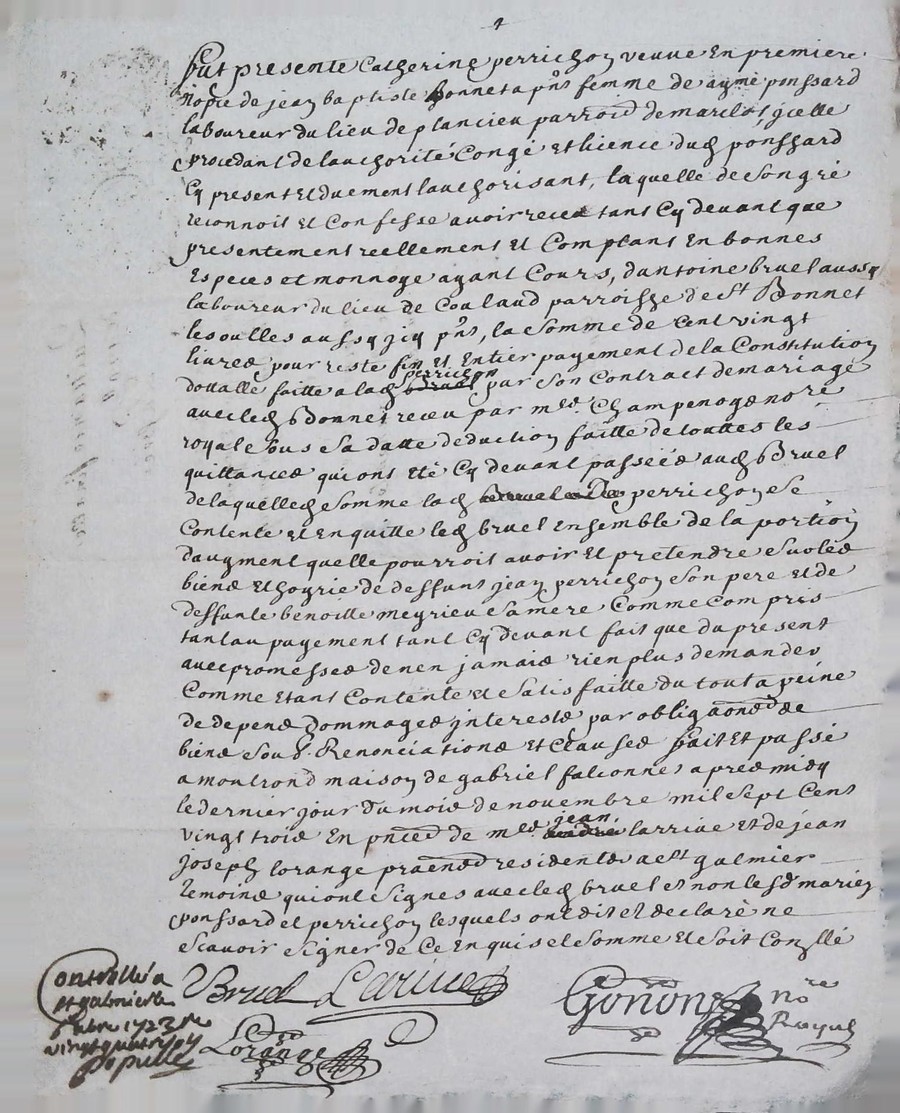 fut presente Catherine perrichon veuve En premiere
nopce de jean baptiste bonnet a pnt femme de aymé ponssard
laboureur du lieu de plancieu parroisse de marclost jcelle
procedant de lauthorité Congé et licence dud ponssard
Cy present et duement lauthorisant, laquelle de son gré
reconnoit et Confesse avoir receu tant Cy devant que
presentement reellement et Comptant En bonnes
Especes et monnoye ayant Cours, dantoine bruel aussy
laboureur du lieu de Coulaud parroisse de St Bonnet
les oulles aussy jcy pnt, la somme de Cent vingt
livres pour reste fin et Entier payement de la Constitution
dottalle faitte a lad perrichon par son Contract de mariage
avec led Bonnet receu par me Champenoys nore
royal sous sa datte deduction faitte de touttes les
quittances qui ont eté Cy devant passéés aud Bruel
de laquelled somme lad perrichon se
Contente et en quitte led bruel Ensemble de la portion
daugment quelle pourroit avoir et pretendre sur les
biens et hoyrie de deffunt jean perrichon son pere et de
deffunte benoitte meyrieu sa mere Comme Compris
tant au payement tant Cy devant fait que du present
avec promesses de nen jamais rien plus demander
Comme Etant Contente et satisfaitte du tout a peine
de depens dommages jnterests par obligaons de
biens soub. Renonciations et Clauses fait et passé
a montrond maison de gabriel falconnet apres midy
le dernier jour du mois de novembre mil sept Cent
vingt trois En pnce de me jean larrive et de jean
joseph lorange residents a St galmier
temoins qui ont signes avec led bruel et non lesd mariez
ponssard et perrichon lesquels ont dit et declaré ne
scavoir signer de Ce Enquis et somme et soit Conllé
Controllé a
St galmier le
1723
vingt quatre
Bruel Larrive
Lorange
Gonon nore
Royal